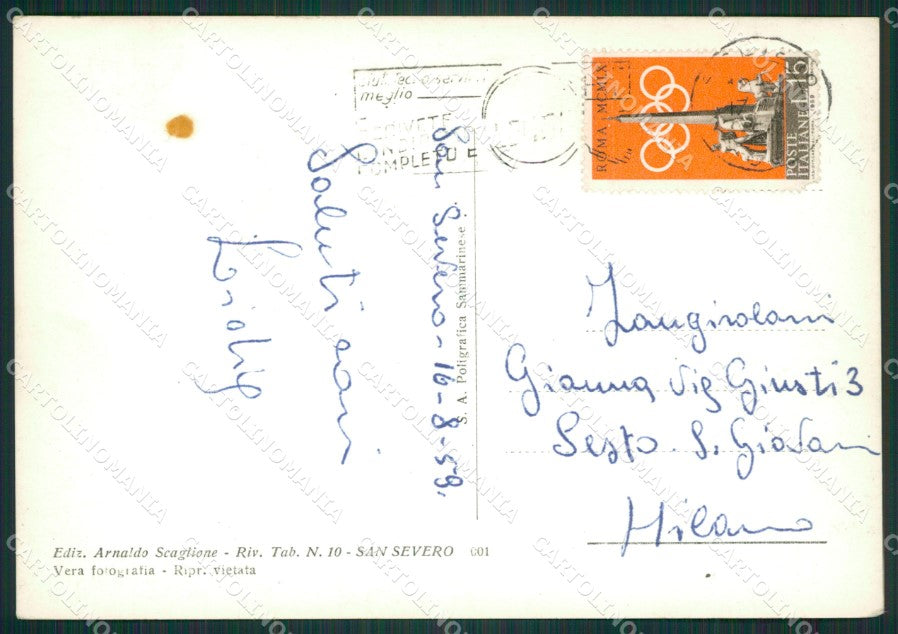 San Severo - 16-8-59.
Saluti cari
meglio
SCRIVETE
COMPLETO E
ROMA MCMLX
L. 15
POSTE
ITALIANE
Zangirolami
Gianna Via Giusti 3
Sesto S. Giovanni
Milano
S. A. Poligrafica Sammarinese
Ediz. Arnaldo Scaglione - Riv. Tab. N. 10 - SAN SEVERO 601
Vera fotografia - Ripr. vietata
CARTOLINOMANIA